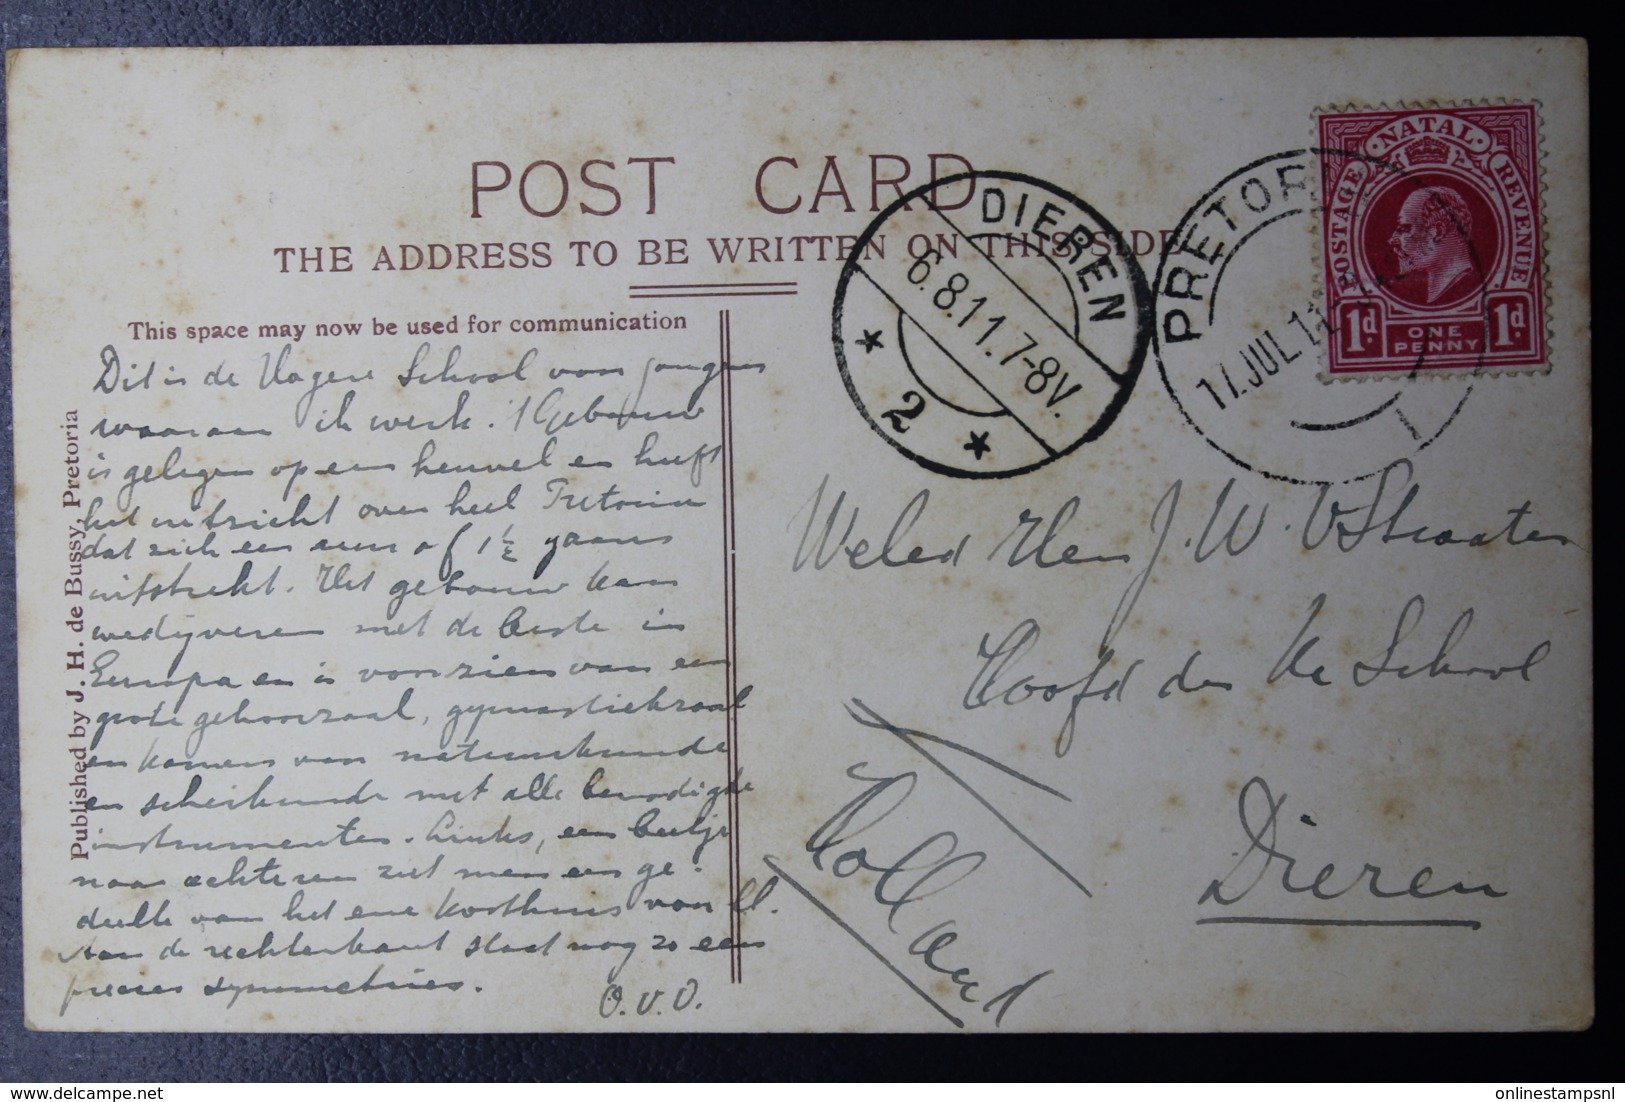 POST CARD
THE ADDRESS TO BE WRITTEN ON THIS SIDE
This space may now be used for communication
Published by J. H. de Bussy, Pretoria
Dit is de Hogere School voor jongens
waaraan ik werk. 't Gebouw
is gelegen op een heuvel en heeft
het uitzicht over heel Pretoria
dat zich een uur of 1½ gaans
uitstrekt. Het gebouw kan
wedijveren met de beste in
Europa en is voorzien van een
grote gehoorzaal, gymnastiekzaal
en kamers van natuurkunde
en scheikunde met alle benodigde
instrumenten. Links, een beetje
naar achteren ziet men een ge-
deelte van het ene kosthuis van ll.
Aan de rechterkant staat nog zo een
precies symmetries.
O.V.O.
DIEREN
6.8.11.7-8V.
2
PRETORIA
17.JUL.11
NATAL
POSTAGE
REVENUE
1d.
ONE PENNY
1d.
WelEd Heer J. W. v Straaten
Hoofd der School
Dieren
Holland
onlinestampsnl